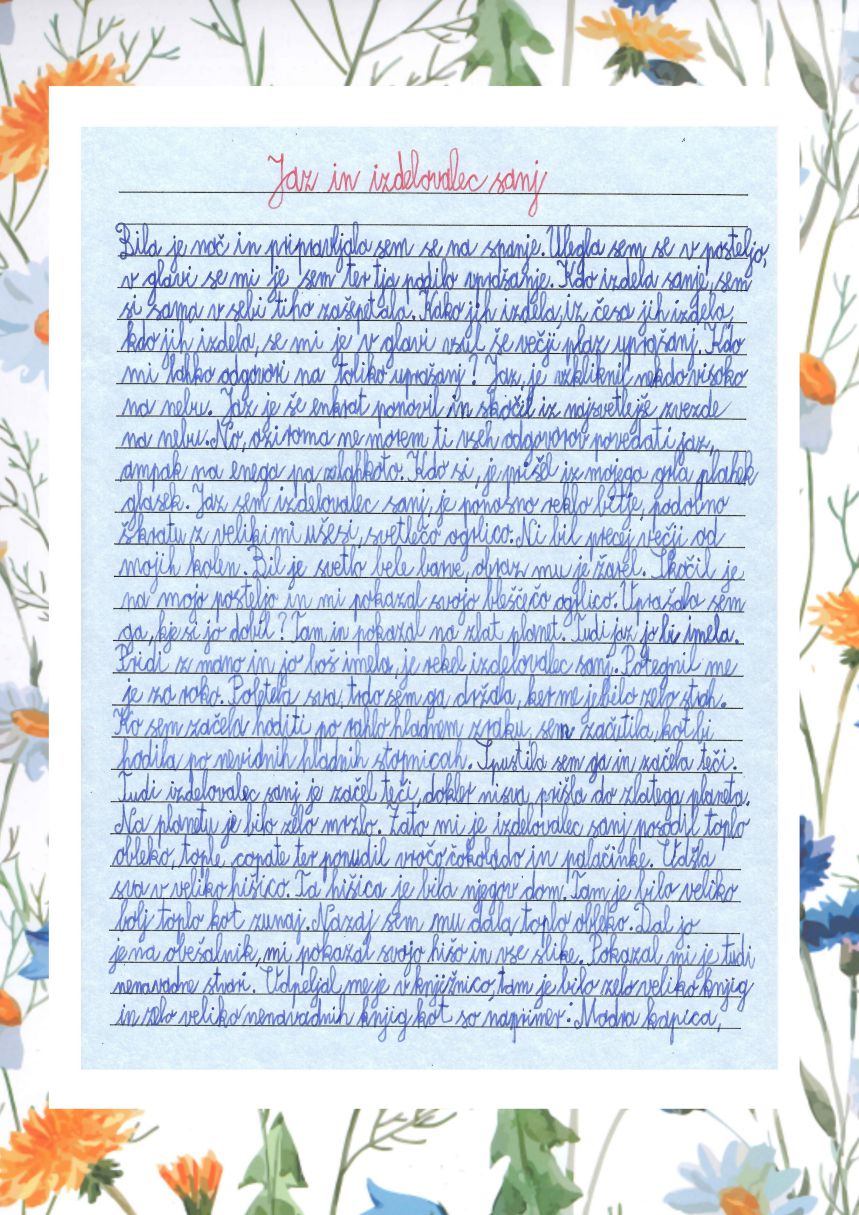 Jaz in izdelovalec sanj
Bila je noč in pripravljala sem se na spanje. Ulegla sem se v posteljo,
v glavi se mi je sem ter tja podilo vprašanje. Kdo izdela sanje, sem
si sama v sebi tiho zašepetala. Kako jih izdela, iz česa jih izdela,
kdo jih izdela, se mi je v glavi vsul še večji plaz vprašanj. Kdo
mi lahko odgovori na toliko vprašanj? Jaz, je vzkliknil nekdo visoko
na nebu. Jaz je še enkrat ponovil in skočil iz najsvetlejše zvezde
na nebu. No, oziroma ne morem ti vseh odgovorov povedati jaz,
ampak na enega pa zlahkoto. Kdo si, je prišel iz mojega grla plahek
glasek. Jaz sem izdelovalec sanj, je ponosno reklo bitje, podobno
škratu z velikimi ušesi, svetlečo ogrlico. Ni bil precej večji od
mojih kolen. Bil je svetlo bele barve, obraz mu je žarel. Skočil je
na mojo posteljo in mi pokazal svojo bleščečo ogrlico. Vprašala sem
ga, kje si jo dobil? Tam in pokazal na zlat planet. Tudi jaz jo bi imela.
Pridi z mano in jo boš imela, je rekel izdelovalec sanj. Potegnil me
je za roko. Poletela sva, trdo sem ga držala, ker me je bilo zelo strah.
Ko sem začela hoditi po rahlo hladnem zraku, sem začutila, kot bi
hodila po nevidnih hladnih stopnicah. Spustila sem ga in začela teči.
Tudi izdelovalec sanj je začel teči, dokler nisva prišla do zlatega planeta.
Na planetu je bilo zelo mrzlo. Zato mi je izdelovalec sanj posodil toplo
obleko, tople copate ter ponudil vročo čokolado in palačinke. Odšla
sva v veliko hišico. Ta hišica je bila njegov dom. Tam je bilo veliko
bolj toplo kot zunaj. Nazaj sem mu dala toplo obleko. Dal jo
je na obešalnik, mi pokazal svojo hišo in vse slike. Pokazal mi je tudi
nenavadne stvari. Odpeljal me je v knjižnico, tam je bilo zelo veliko knjig
in zelo veliko nenavadnih knjig kot so naprimer: Modra kapica,